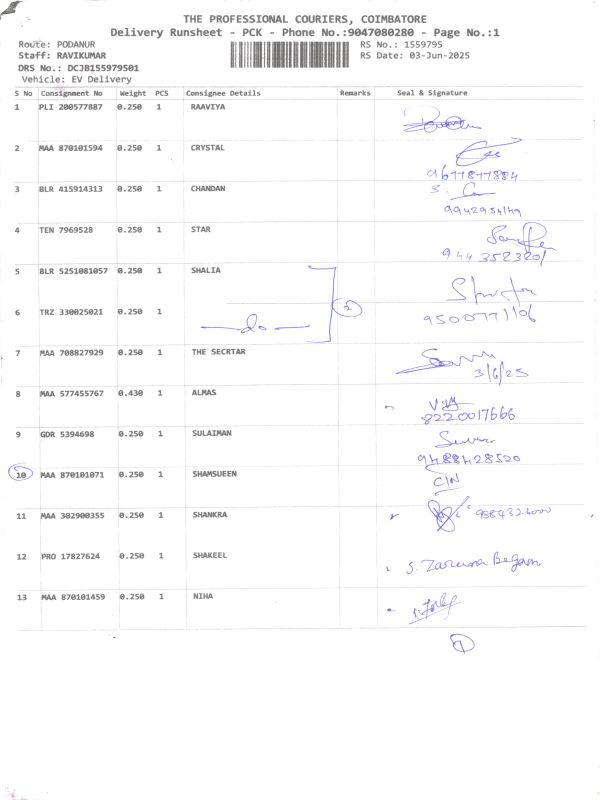 THE PROFESSIONAL COURIERS, COIMBATORE
Delivery Runsheet - PCK - Phone No.:9047080280 - Page No.:1
Route: PODANUR RS No.: 1559795
Staff: RAVIKUMAR RS Date: 03-Jun-2025
DRS No.: DCJB155979501
Vehicle: EV Delivery
S No Consignment No Weight PCS Consignee Details Remarks Seal & Signature
1 PLI 200577887 0.250 1 RAAVIYA
2 MAA 870101594 0.250 1 CRYSTAL
9677877884
3 BLR 415914313 0.250 1 CHANDAN
4 TEN 7969528 0.250 1 STAR
9443523201
5 BLR 5251081057 0.250 1 SHALIA
6 TRZ 330025021 0.250 1 do 2 9500771106
7 MAA 708827929 0.250 1 THE SECRTAR
3/6/25
8 MAA 577455767 0.430 1 ALMAS
8220017666
9 GDR 5394698 0.250 1 SULAIMAN
9488428520
10 MAA 870101071 0.250 1 SHAMSUEEN C/N
11 MAA 302900355 0.250 1 SHANKRA
12 PRO 17827624 0.250 1 SHAKEEL S. Zareena Begam
13 MAA 870101459 0.250 1 NIHA